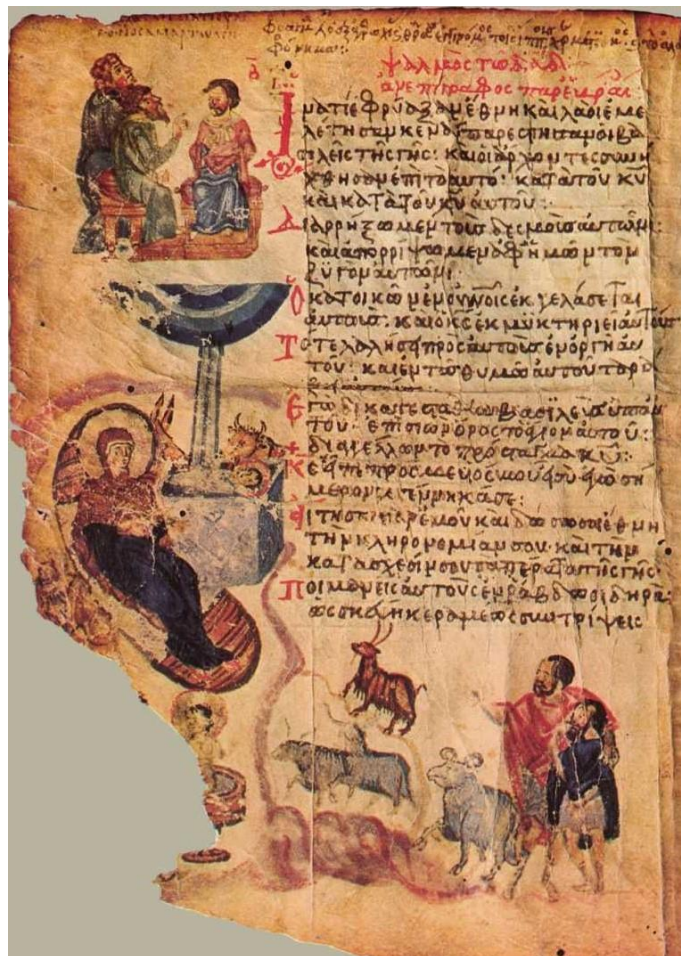 ψαλμὸς τῶ δαδ
ἀνεπίγραφος παρ ἑβραί
Ἱνατί ἐφρύαξαν ἔθνη καὶ λαοὶ ἐμε
λέτησαν κενά· παρέστησαν οἱ βα
σιλεῖς τῆς γῆς· καὶ οἱ ἄρχοντες συνή
χθησαν ἐπὶ τὸ αὐτό· κατὰ τοῦ κυ
καὶ κατὰ τοῦ χυ αὐτοῦ:
Διαρρήξωμεν τοὺς δεσμοὺς αὐτῶν:
καὶ ἀπορρίψωμεν ἀφ ἡμῶν τὸν
ζυγὸν αὐτῶν:
Ὁ κατοικῶν ἐν οὐνοῖς ἐκγελάσεται
αὐτούς· καὶ ὁ κς ἐκμυκτηριεῖ αὐτούς
Τότε λαλήσει πρὸς αὐτοὺς ἐν ὀργῆ αὐ
τοῦ· καὶ ἐν τῶ θυμῶ αὐτοῦ ταρά
Ἐγὼ δὲ κατεστάθην βασιλεὺς ὑπ αὐ
τοῦ· ἐπὶ σιὼν ὄρος τὸ ἅγιον αὐτοῦ:
διαγγέλλων τὸ πρόσταγμα κυ:
Κς εἶπε πρός με υἱός μου εἶ σὺ ἐγὼ σή
μερον γεγέννηκά σε:
Αἴτησαι παρ ἐμοῦ καὶ δώσω σοι ἔθνη
τὴν κληρονομίαν σου· καὶ τὴν
κατάσχεσίν σου τὰ πέρατα τῆς γῆς·
Ποιμανεῖς αὐτοὺς ἐν ῥάβδω σιδηρᾶ
ὡς σκεύη κεραμέως συντρίψεις